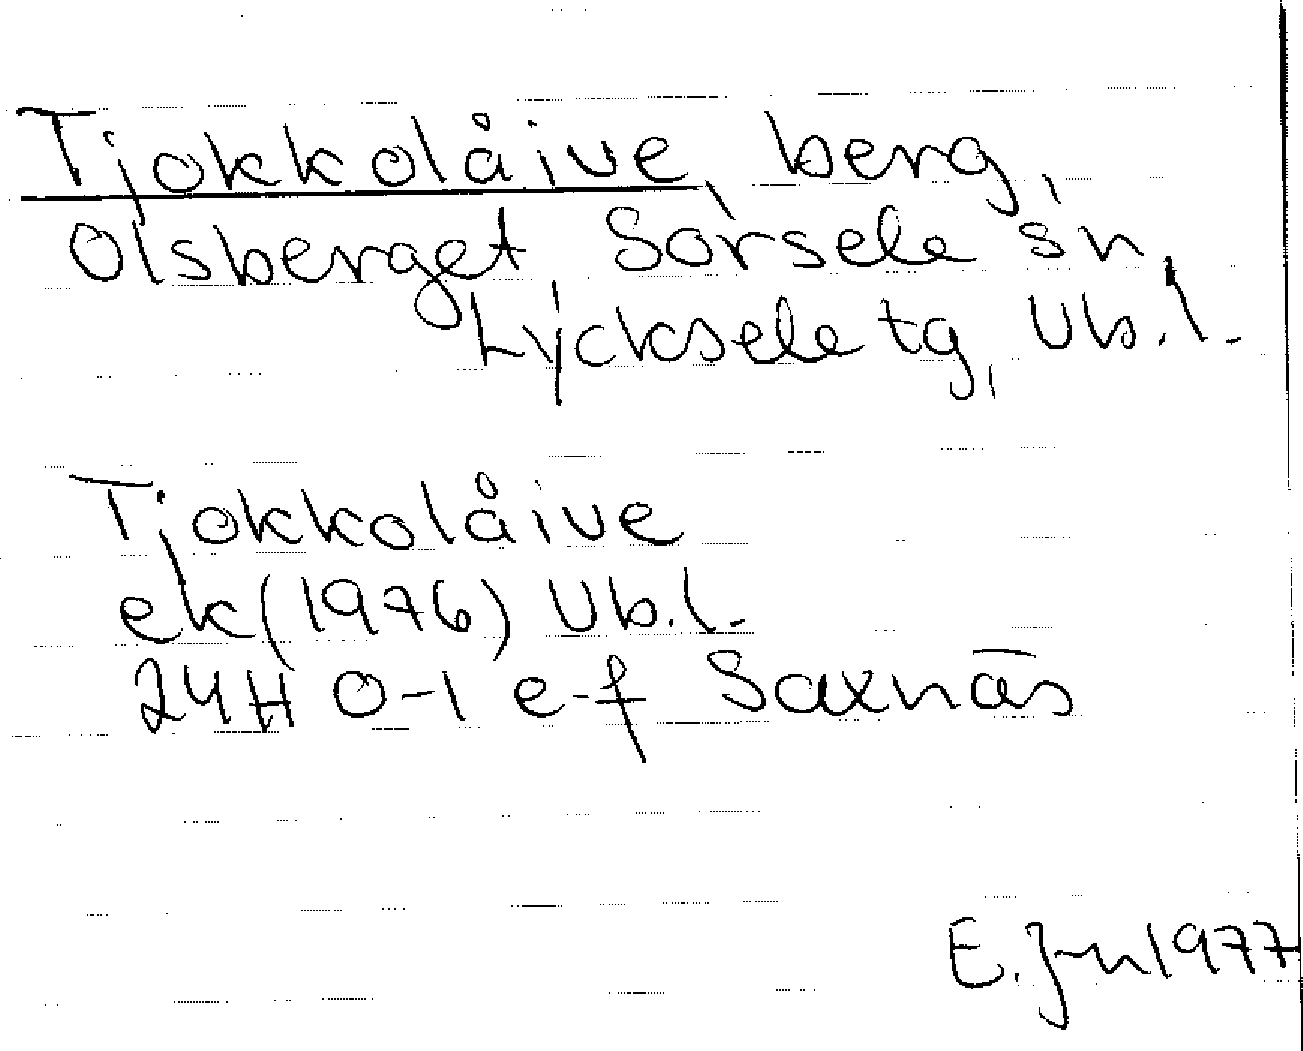 Tjokkolåive, berg,
Olsberget Sorsele sn,
Lycksele tg, Vb.l.
Tjokkolåive
ek (1976) Vb.l.
24H 0-1 e-f Saxnäs
E. J-n 1977